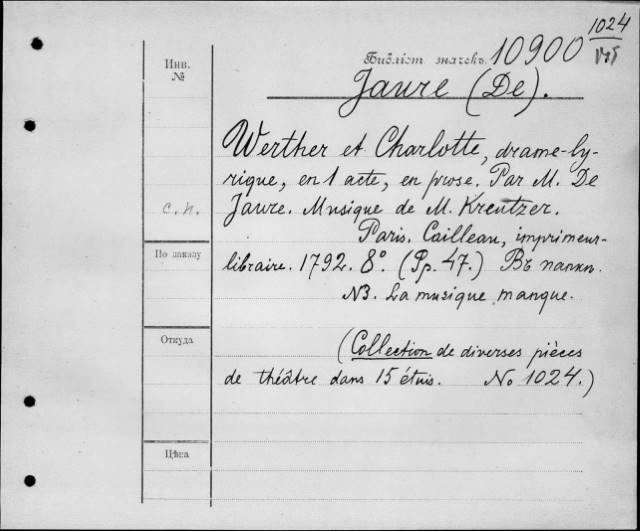 1024
Библіот. значекъ. 10900
Инв.
№
Jaure (De).
Werther et Charlotte, drame-ly-
rique, en 1 acte, en prose. Par M. De
с.п.
Jaure. Musique de M. Kreutzer.
Paris. Cailleau, imprimeur-
По заказу
libraire. 1792. 8º. (Pp. 47.) Въ папкѣ.
NB. La musique manque.
Откуда
(Collection de diverses pièces
de théâtre dans 15 étuis. No 1024.)
Цѣна